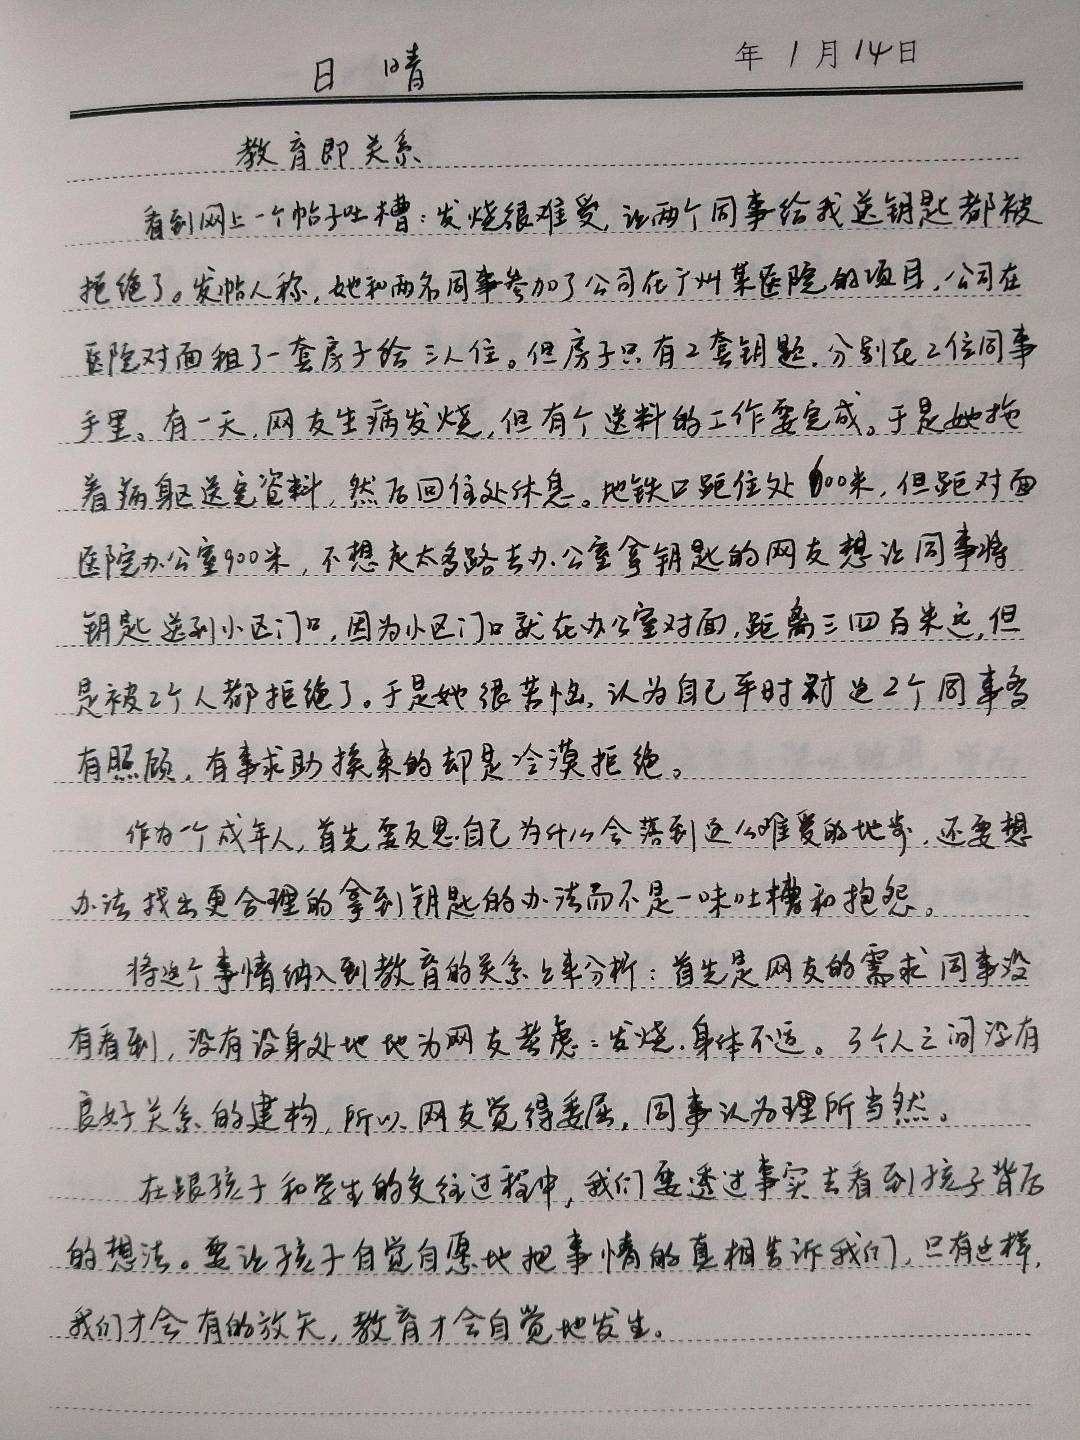 日 晴 年 1 月 14 日
教育即关系
看到网上一个帖子吐槽：发烧很难受，让两个同事给我送钥匙都被
拒绝了。发帖人称，她和两名同事参加了公司在广州某医院的项目，公司在
医院对面租了一套房子给三人住。但房子只有2套钥匙，分别在2位同事
手里。有一天，网友生病发烧，但有个送料的工作要完成。于是她拖
着病躯送完资料，然后回住处休息。地铁口距住处600米，但距对面
医院办公室900米，不想走太多路去办公室拿钥匙的网友想让同事将
钥匙送到小区门口，因为小区门口就在办公室对面，距离三四百米远，但
是被2个人都拒绝了。于是她很苦恼，认为自己平时对这2个同事多
有照顾，有事求助换来的却是冷漠拒绝。
作为一个成年人，首先要反思自己为什么会落到这么难受的地步，还要想
办法找出更合理的拿到钥匙的办法而不是一味吐槽和抱怨。
将这个事情纳入到教育的关系上来分析：首先是网友的需求同事没
有看到，没有设身处地地为网友考虑：发烧，身体不适。3个人之间没有
良好关系的建构，所以网友觉得委屈，同事认为理所当然。
在跟孩子和学生的交往过程中，我们要透过事实去看到孩子背后
的想法。要让孩子自觉自愿地把事情的真相告诉我们，只有这样，
我们才会有的放矢，教育才会自觉地发生。